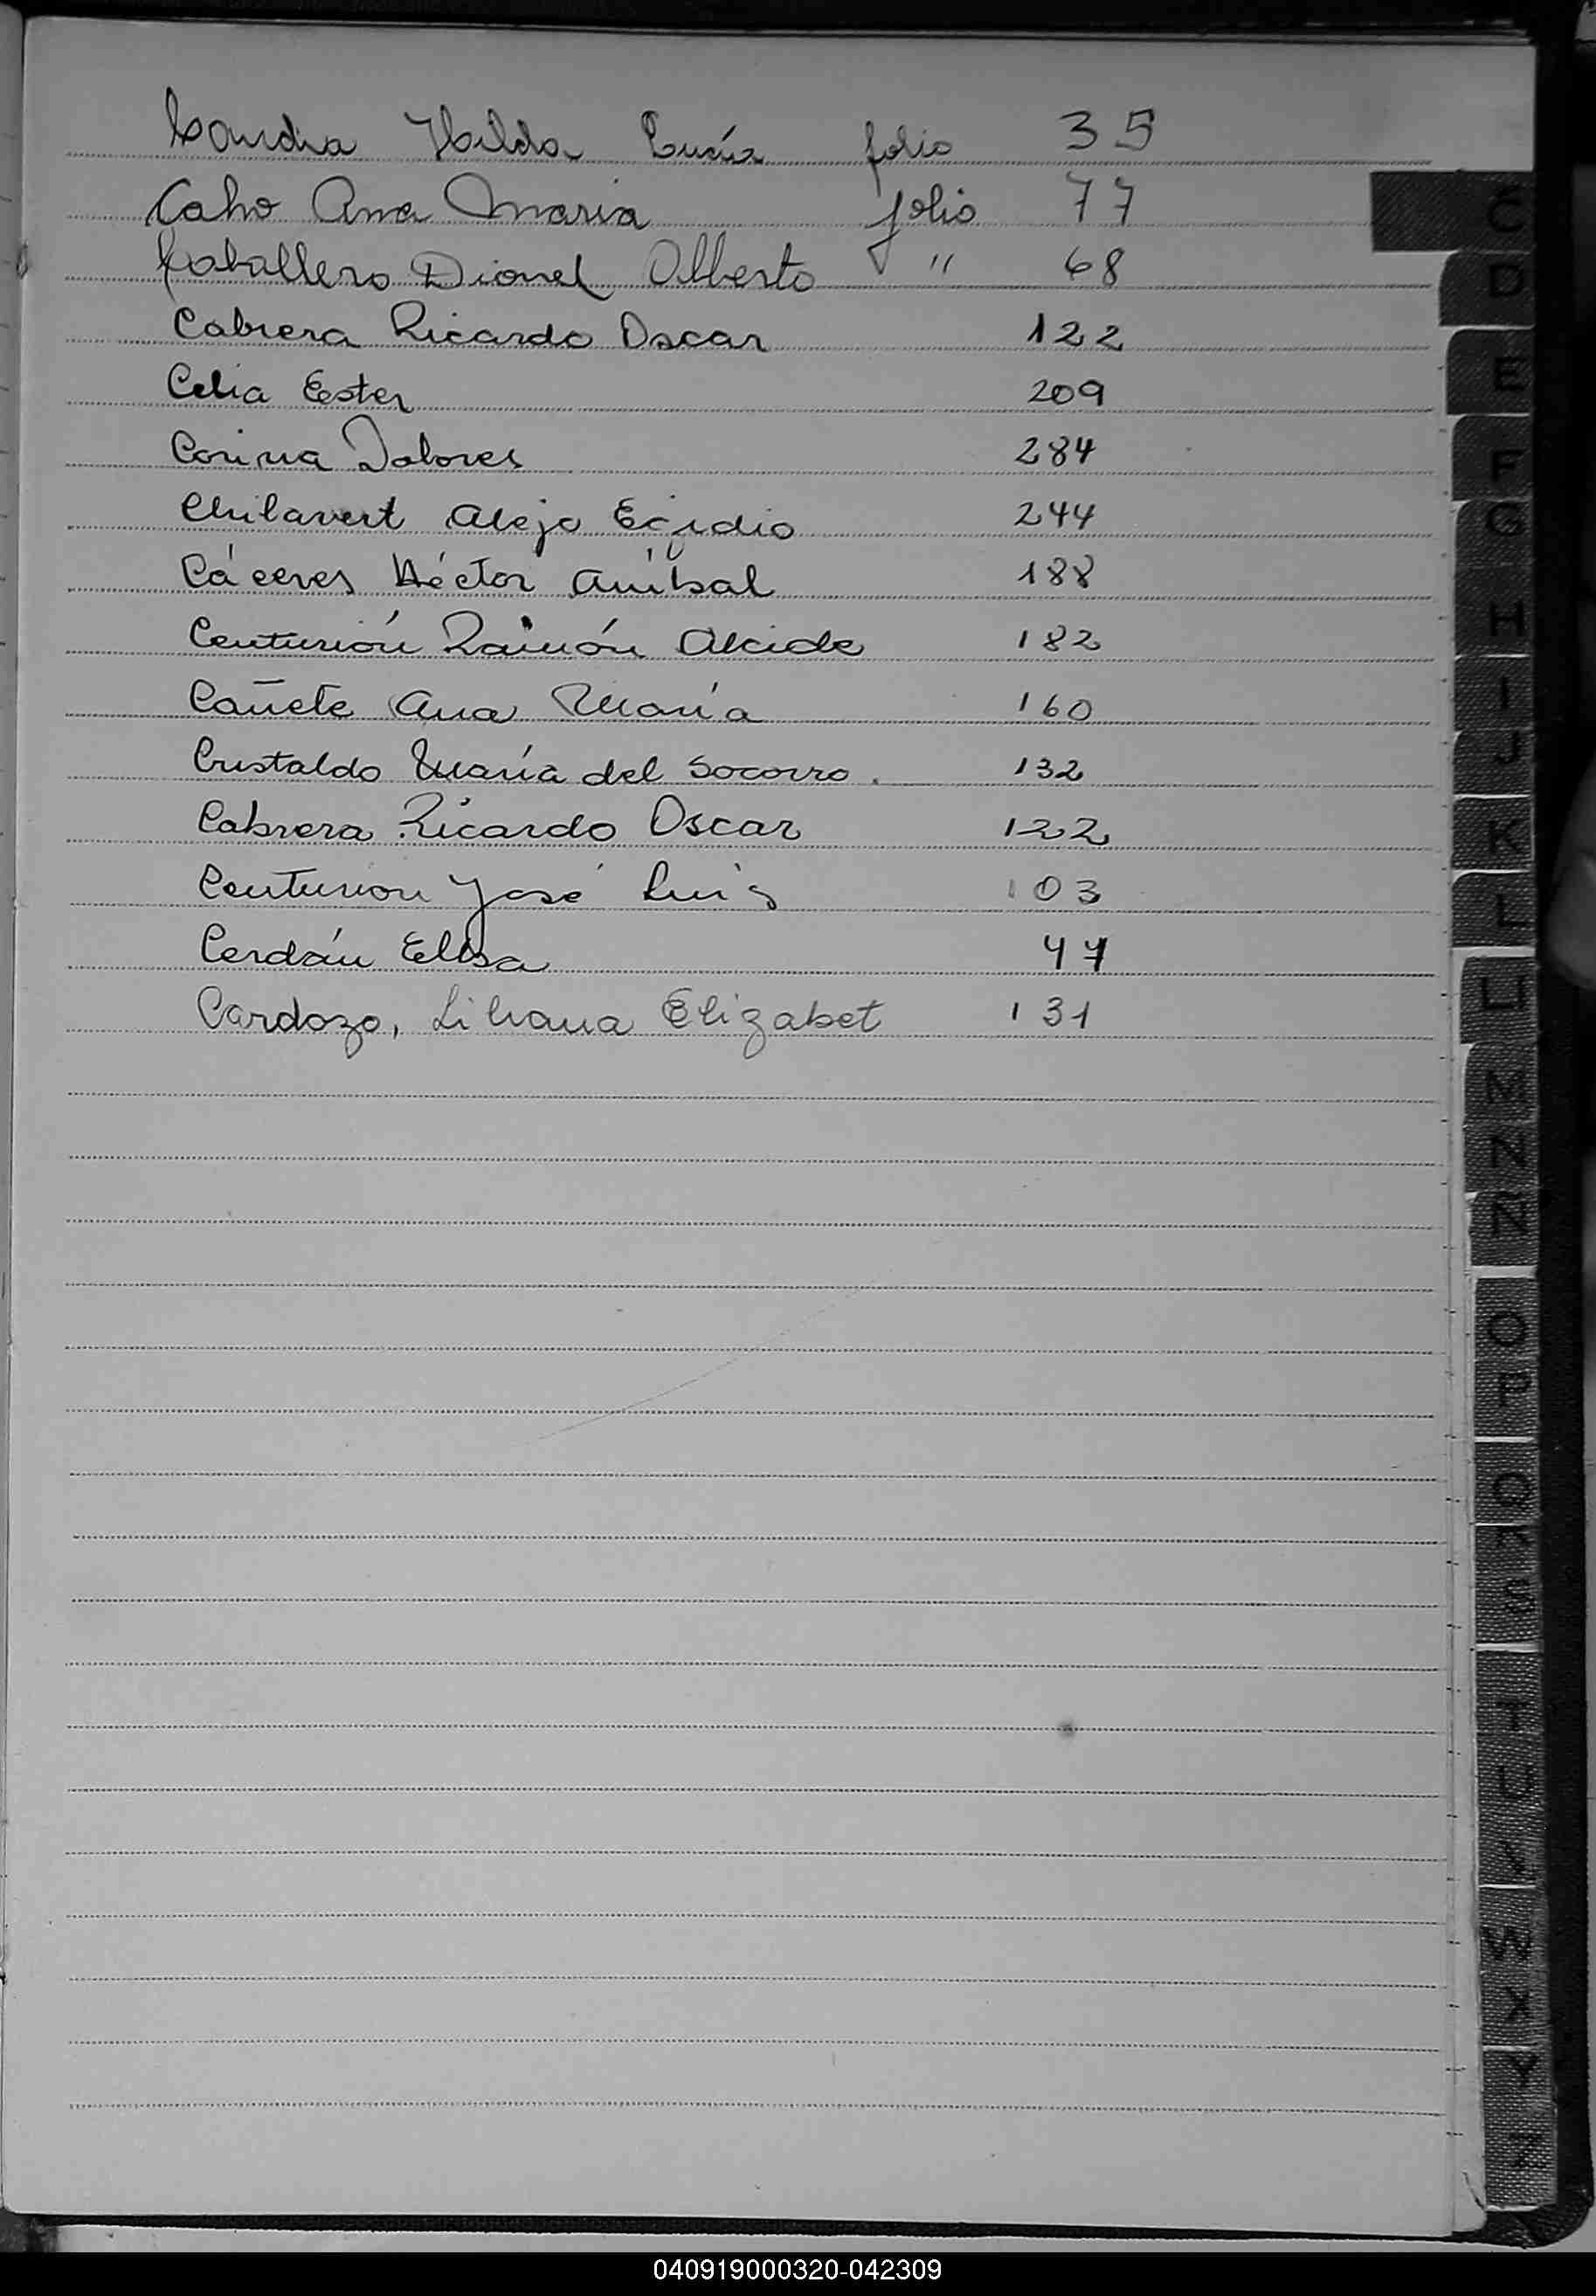 Candia Hilda Lucía folio 35
Caho Ana Maria folio 77
Caballero Dionel Alberto " 68
Cabrera Ricardo Oscar 122
Celia Ester 209
Corina Dolores 284
Chilavert Alejo Egidio 244
Cáceres Héctor Aníbal 188
Centurión Ramón Alcide 182
Cañete Ana María 160
Cristaldo María del Socorro. 132
Cabrera Ricardo Oscar 122
Centurion José Luis 103
Cerdán Elisa 47
Cardozo, Liliana Elizabet 131
C
D
E
F
G
H
I
J
K
L
LL
M
N
Ñ
O
P
Q
R
S
T
U
V
W
X
Y
Z
040919000320-042309